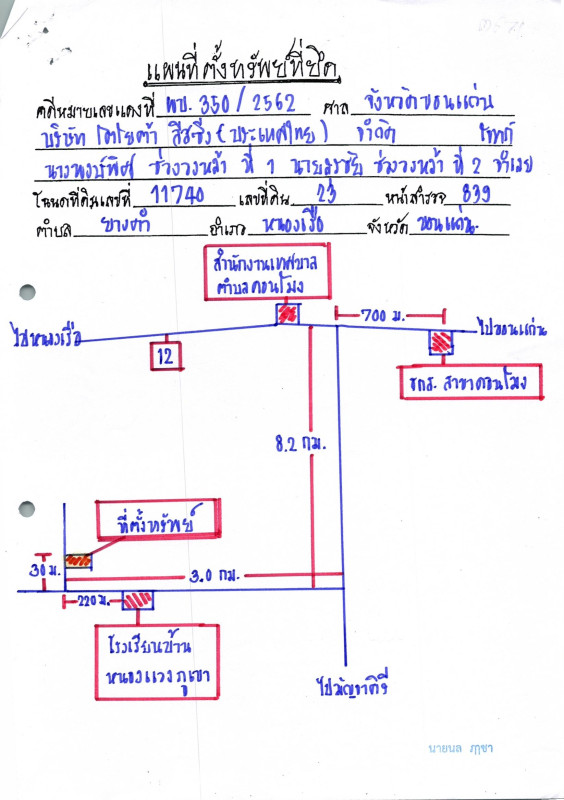 แผนที่ตั้งทรัพย์ที่ยึด
คดีหมายเลขแดงที่ ผบ. 350/2562 ศาล จังหวัดขอนแก่น
บริษัท โตโยต้า ลีสซิ่ง (ประเทศไทย) จำกัด โจทก์
ช่วงวงหล้า ที่ 1 นายสุรชัย ช่วงวงหล้า ที่ 2 จำเลย
โฉนดที่ดินเลขที่ 11740 เลขที่ดิน 23 หน้าสำรวจ 839
ตำบล ยางคำ อำเภอ หนองเรือ จังหวัด ขอนแก่น
สำนักงานเทศบาล
ตำบลดอนโมง
700 ม.
ไปหนองเรือ
ไปขอนแก่น
12
ธกส. สาขาดอนโมง
8.2 กม.
ที่ตั้งทรัพย์
30 ม.
3.0 กม.
220 ม.
โรงเรียนบ้าน
หนองแวงภูเขา
ไปมัญจาคีรี
นายนล ภูชา